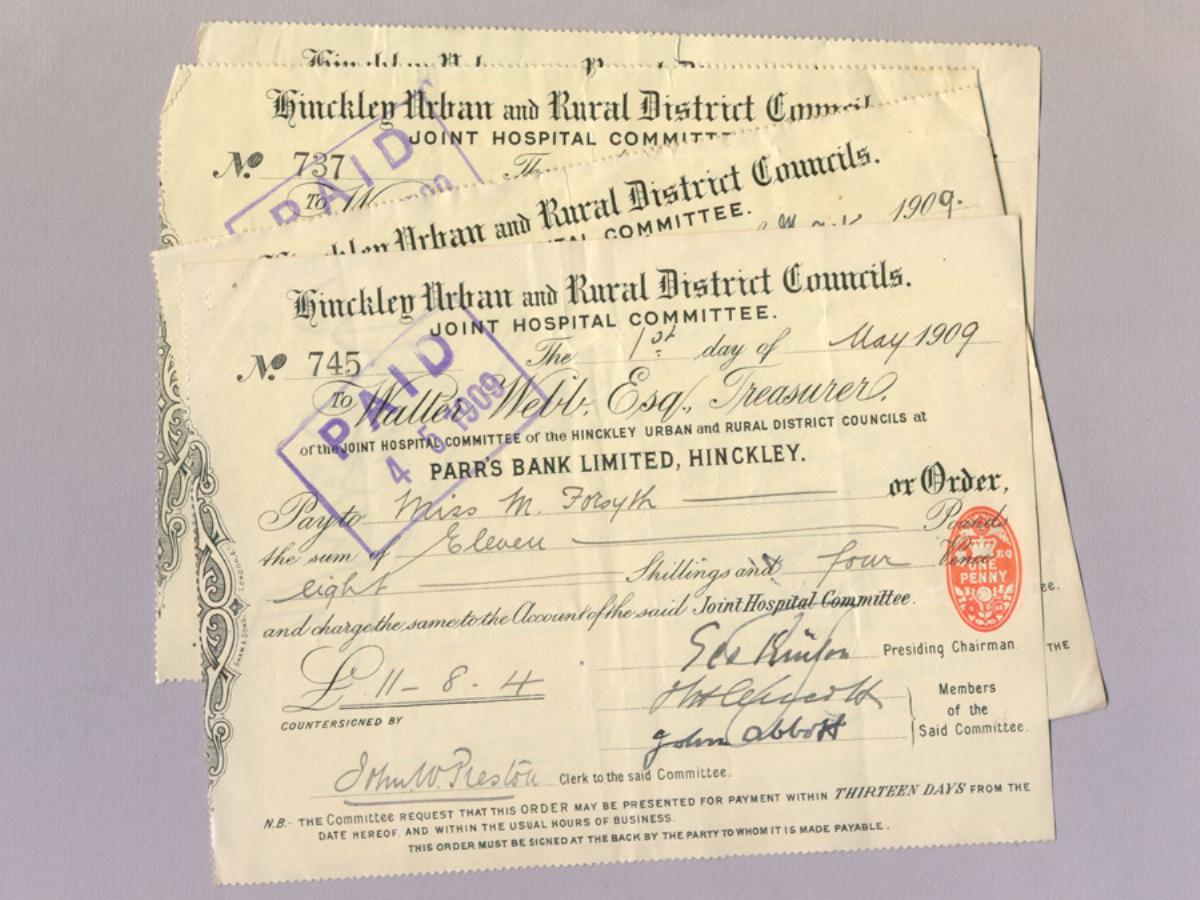 Hinckley Urban and Rural District
JOINT HOSPITAL
No. 737
PAID
To
Urban and Rural District Councils.
COMMITTEE.
1909.
Hinckley Urban and Rural District Councils.
JOINT HOSPITAL COMMITTEE.
No. 745 The 1st day of May 1909
To Walter Webb, Esq., Treasurer,
of the JOINT HOSPITAL COMMITTEE of the HINCKLEY URBAN and RURAL DISTRICT COUNCILS at
PARR'S BANK LIMITED, HINCKLEY.
PAID
4 5 1909
Pay to Miss M. Forsyth or Order,
the sum of Eleven Pounds
eight Shillings and four Pence
ONE
PENNY
and charge the same to the Account of the said Joint Hospital Committee.
£ 11 - 8 - 4
Presiding Chairman.
COUNTERSIGNED BY
John Abbott
Members
of the
Said Committee.
John W. Preston Clerk to the said Committee.
N.B.- THE Committee REQUEST THAT THIS ORDER MAY BE PRESENTED FOR PAYMENT WITHIN THIRTEEN DAYS FROM THE
DATE HEREOF, AND WITHIN THE USUAL HOURS OF BUSINESS.
THIS ORDER MUST BE SIGNED AT THE BACK BY THE PARTY TO WHOM IT IS MADE PAYABLE.
THE